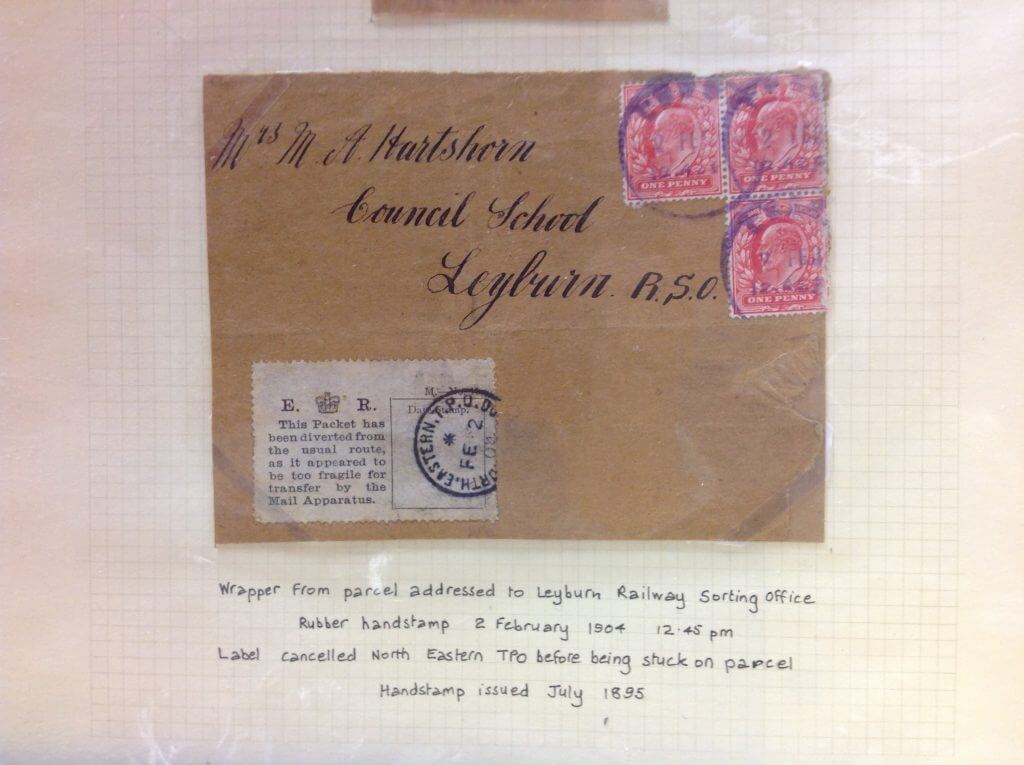 Mrs M. A. Hartshorn
Council School
Leyburn. R.S.O.
ONE PENNY
ONE PENNY
ONE PENNY
E. R.
This Packet has
been diverted from
the usual route,
as it appeared to
be too fragile for
transfer by the
Mail Apparatus.
Date Stamp.
NORTH.EASTERN.T.P.O.DO
FE 2
Wrapper from parcel addressed to Leyburn Railway Sorting Office
Rubber handstamp 2 February 1904 12·45 pm
Label cancelled North Eastern TPO before being stuck on parcel
Handstamp issued July 1895